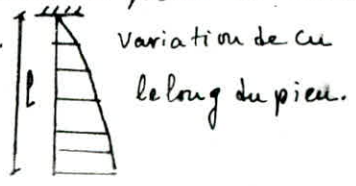 variation de cu
l le long du pieu.